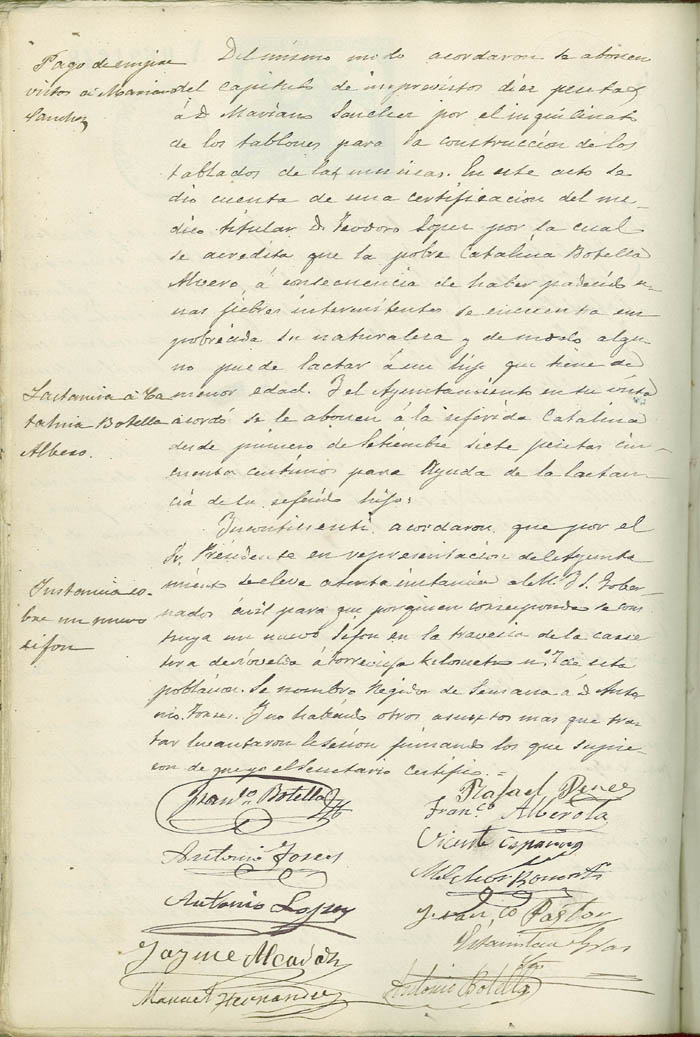 Pago de impre
vistos a Mariano
Sanchez
Del mismo modo acordaron se abonen
del capitulo de imprevistos diez pesetas
á D. Mariano Sanchez por el inquilinato
de los tablones para la construcción de los
tablados de las musicas. En este acto se
dio cuenta de una certificación del me-
dico titular D. Teodoro Lopez por la cual
se acredita que la pobre Catalina Botella
Alvero, á consecuencia de haber padecido u-
nas fiebres intermitentes se encuentra em
pobrecida su naturaleza y de modo algu-
no puede lactar á un hijo que tiene de
menor edad. Y el Ayuntamiento en su vista
acordó se le abonen á la referida Catalina
desde primero de Setiembre siete pesetas cin-
cuenta centimos para ayuda de la lactan-
cia de su referido hijo:
Lactancia á Ca
talina Botella
Albero.
Incontinenti acordaron que por el
Sr. Presidente en representación del Ayunta
miento se eleve atenta instancia al M. Y. S. Gober-
nador civil para que por quien corresponda se cons
truya un nuevo sifon en la travesia de la carre
tera de Novelda á Torrevieja kilometro n.º 7 de esta
población. Se nombro Regidor de Semana á D. Anto
nio Torres. Y no habiendo otros asuntos mas que tra
tar levantaron la sesion firmando los que supie-
ron de que yo el Secretario certifico.=
Instancia so-
bre un nuevo
sifon
Fran.co Botella
Rafael Perez
Fran.co Alberola
Antonio Torres
Vicente
Melchor
Antonio Lopez
Fran.co Pastor
Jayme Alcadar
Estanislao Gras
Manuel Hernandez
Antonio Botella